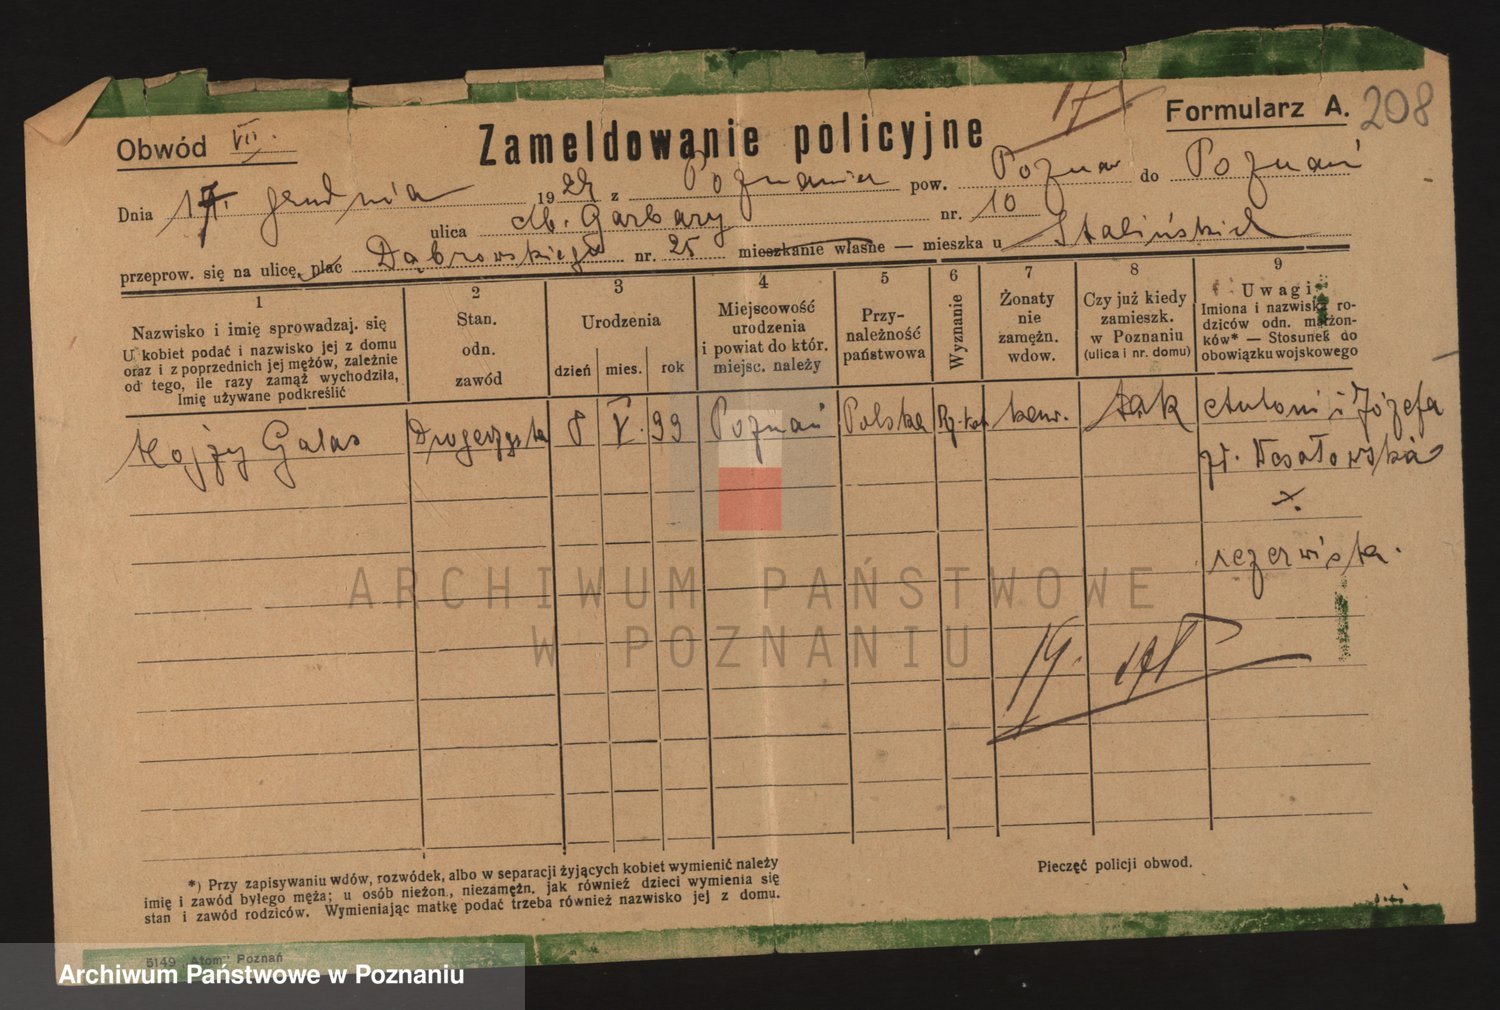 Obwód VII.
Zameldowanie policyjne
17
Formularz A. 208
Dnia 17. grudnia 1929 z Poznania pow. Poznań do Poznań
ulica M. Garbary nr. 10
przeprow. się na ulicę, plac Dąbrowskiego nr. 25 mieszkanie własne — mieszka u Stalińskich
1 2 3 4 5 6 7 8 9
Nazwisko i imię sprowadzaj. się
U kobiet podać i nazwisko jej z domu
oraz i z poprzednich jej mężów, zależnie
od tego, ile razy zamąż wychodziła,
Imię używane podkreślić
Stan.
odn.
zawód
Urodzenia
dzień mies. rok
Miejscowość
urodzenia
i powiat do któr.
miejsc. należy
Przy-
należność
państwowa
Wyznanie
Żonaty
nie
zamężn.
wdow.
Czy już kiedy
zamieszk.
w Poznaniu
(ulica i nr. domu)
Uwagi
Imiona i nazwiska ro-
dziców odn. małżon-
ków* — Stosunek do
obowiązku wojskowego
Galas Drogerzysta 8 V. 99 Poznań Polska Rz-kat kaw. tak Antoni i Józefa
rezerwista.
19.
ARCHIWUM PAŃSTWOWE
W POZNANIU
*) Przy zapisywaniu wdów, rozwódek, albo w separacji żyjących kobiet wymienić należy
imię i zawód byłego męża; u osób nieżon., niezamężn. jak również dzieci wymienia się
stan i zawód rodziców. Wymieniając matkę podać trzeba również nazwisko jej z domu.
Pieczęć policji obwod.
5149 „Atom” Poznań
Archiwum Państwowe w Poznaniu